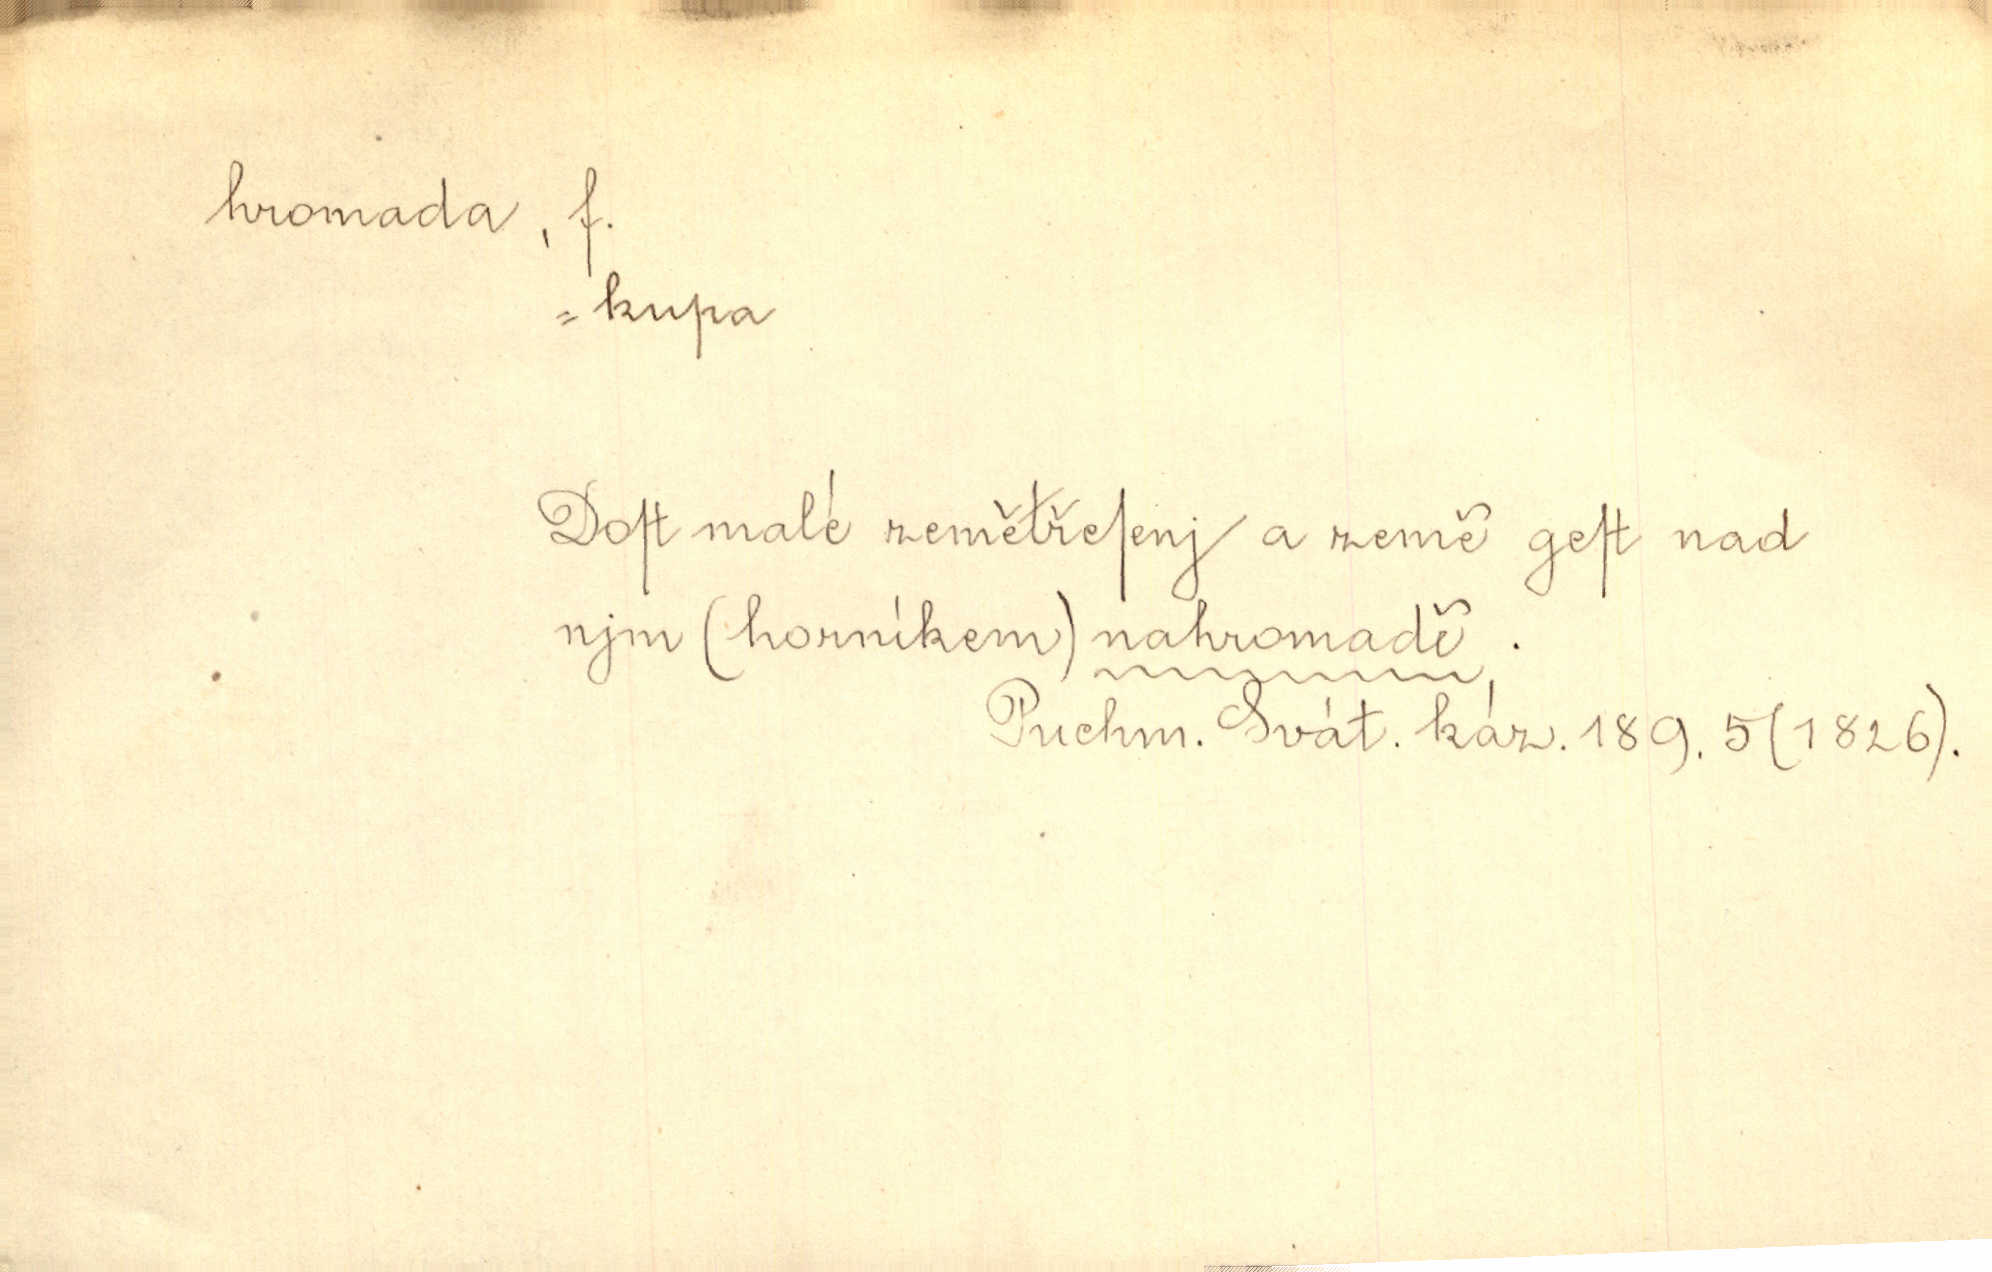 hromada, f.
= kupa
Doſt malé zemětřeſenj a země geſt nad
njm (horníkem) nahromadě.
Puchm. Svát. káz. 189, 5 (1826).